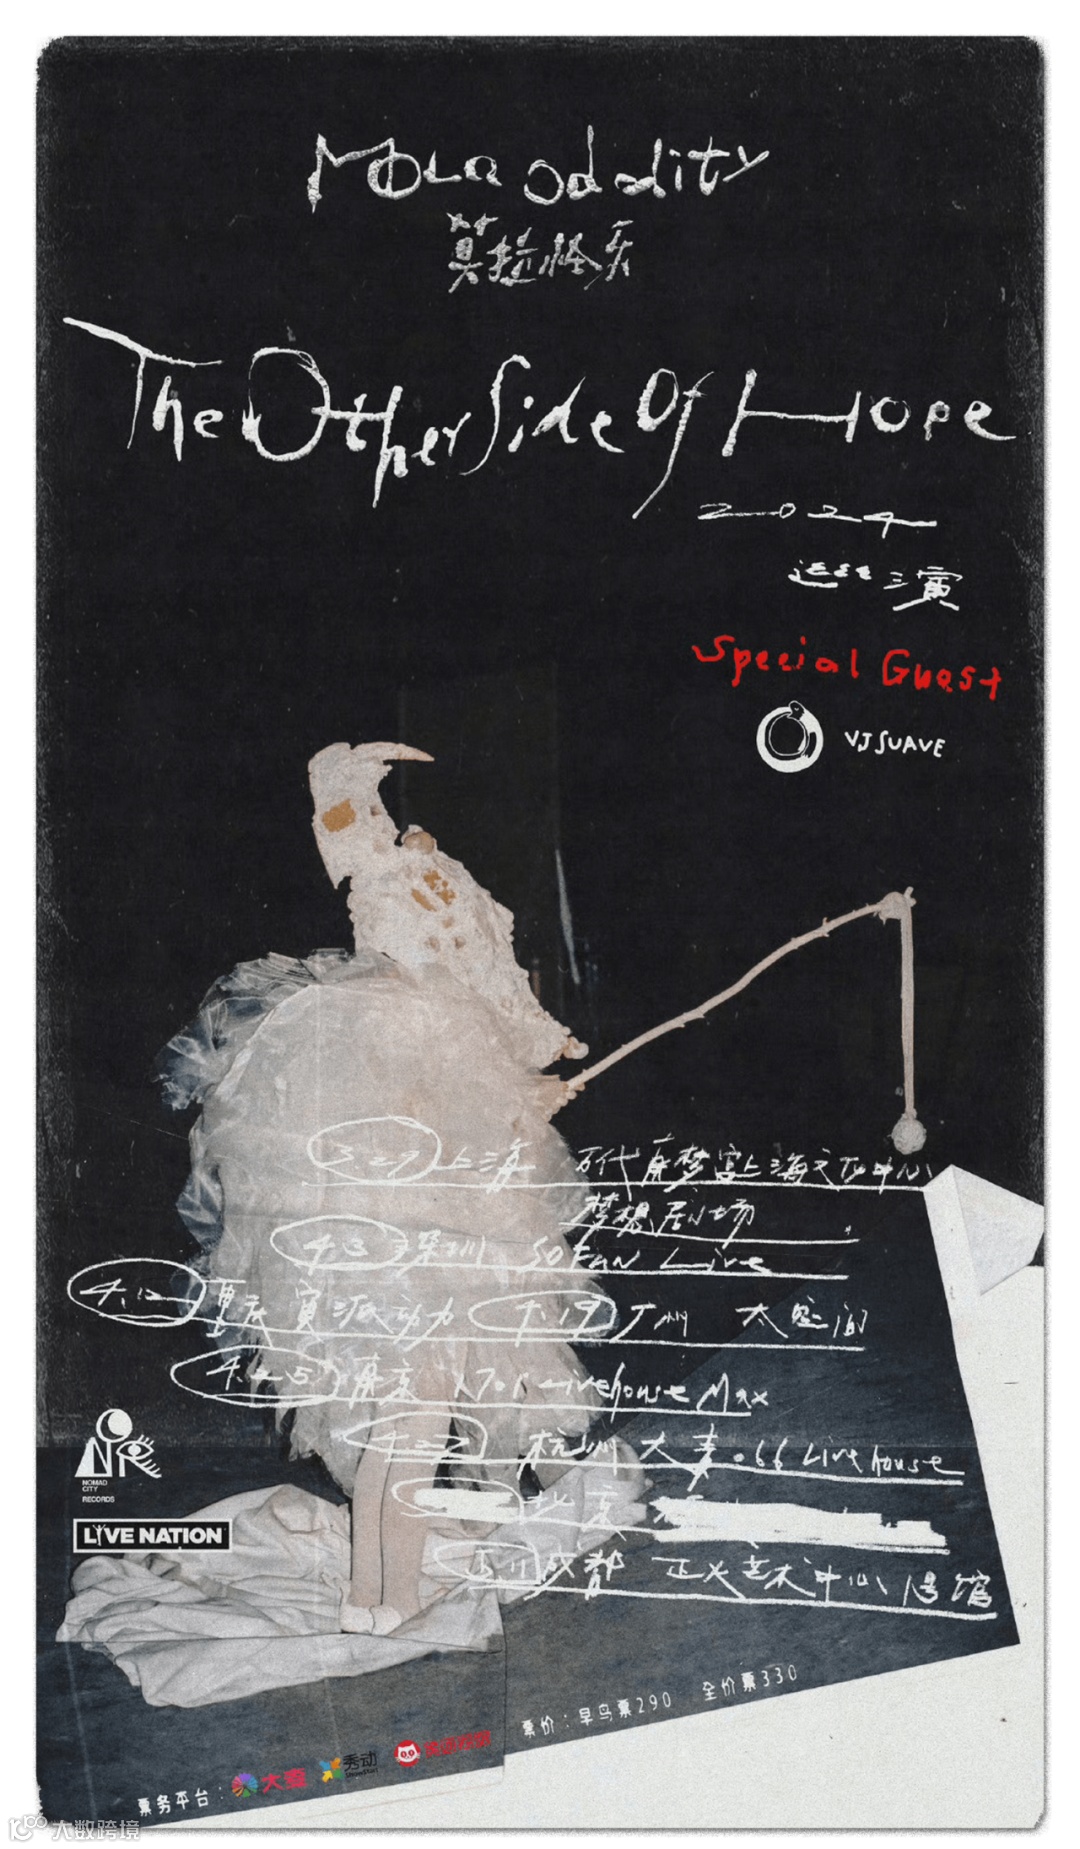 Mola Oddity
莫拉怪灵
The Other Side Of Hope
2024
巡演
Special Guest
VJ SUAVE
3.29 上海 万代南梦宫上海文化中心
梦想剧场
4.3 深圳 SOFUN Live
4.12 重庆 寅派动力 4.19 广州 太空间
4.25 南京 1701 Livehouse Max
4.27 杭州 大麦·66 Livehouse
北京
成都 正火艺术中心
NOMAD
CITY
RECORDS
LIVE NATION
票价：早鸟票290 全价票330
票务平台： 大麦 秀动 ShowStart
大数跨境